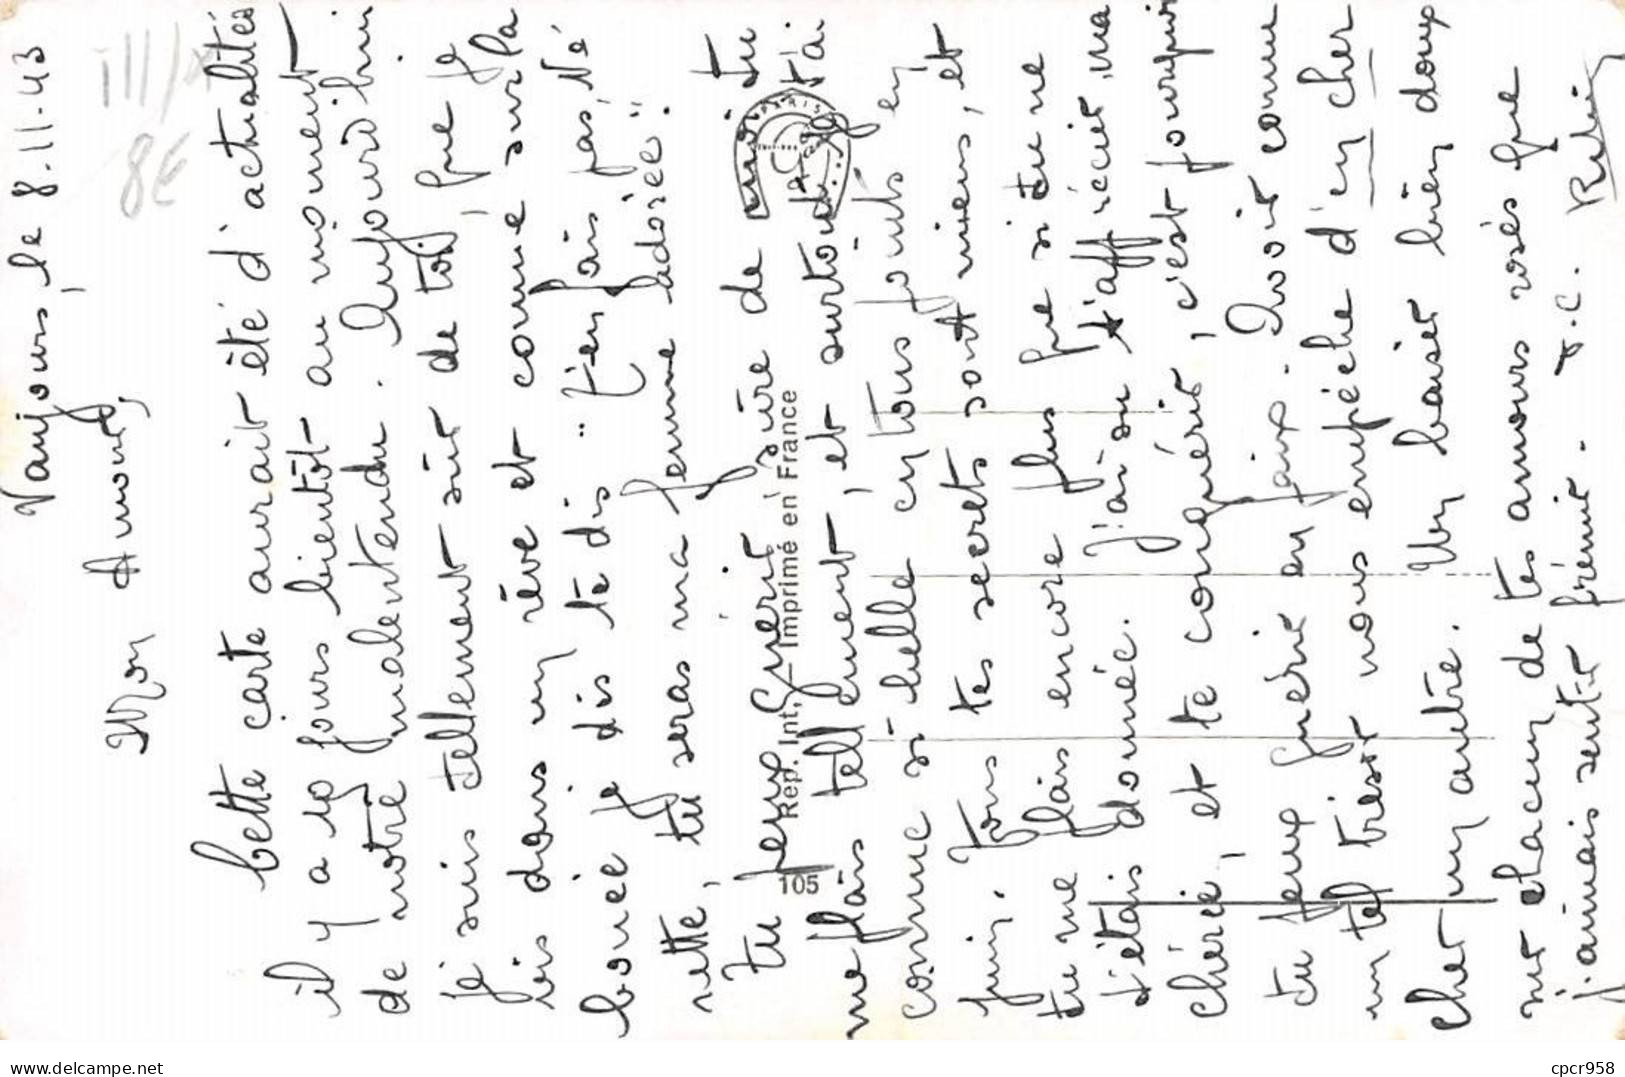 Vaujours, le 8.11.43
Mon Amour,
Cette carte aurait été d'actualités
il y a 10 jours bientôt au moment
de notre malentendu. Aujourd'hui
je suis tellement sûr de toi, que je
vis dans un rêve et comme sur la
bouée je dis te dis "t'en fais pas, Né
nette, tu seras ma femme adorée".
Tu peux guérir sûre de moi. Tu
me plais tellement, et surtout, je t'ai
connue si belle en tous points en
juin. Tous tes secrets sont miens, et
tu me plais encore plus que si tu ne
t'étais donnée. J'ai su t'apprécier, ma
chérie, et te conquérir, c'est pourquoi
tu peux guérir en paix. Avoir connu
un tel trésor nous empêche d'en cher
cher un autre. Un baiser bien doux
sur chacun de tes amours rosés que
j'aimais sentir frémir. T.C.
105
Rép. Int. - Imprimé en France
PARIS
8€
cpcr958
delcampe.net